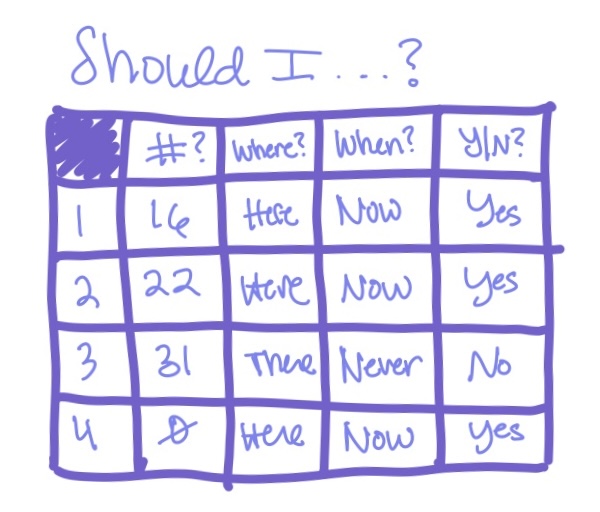 Should I...?
#? Where? When? Y/N?
1 16 Here Now Yes
2 22 Here Now Yes
3 31 There Never No
4 0 Here Now Yes